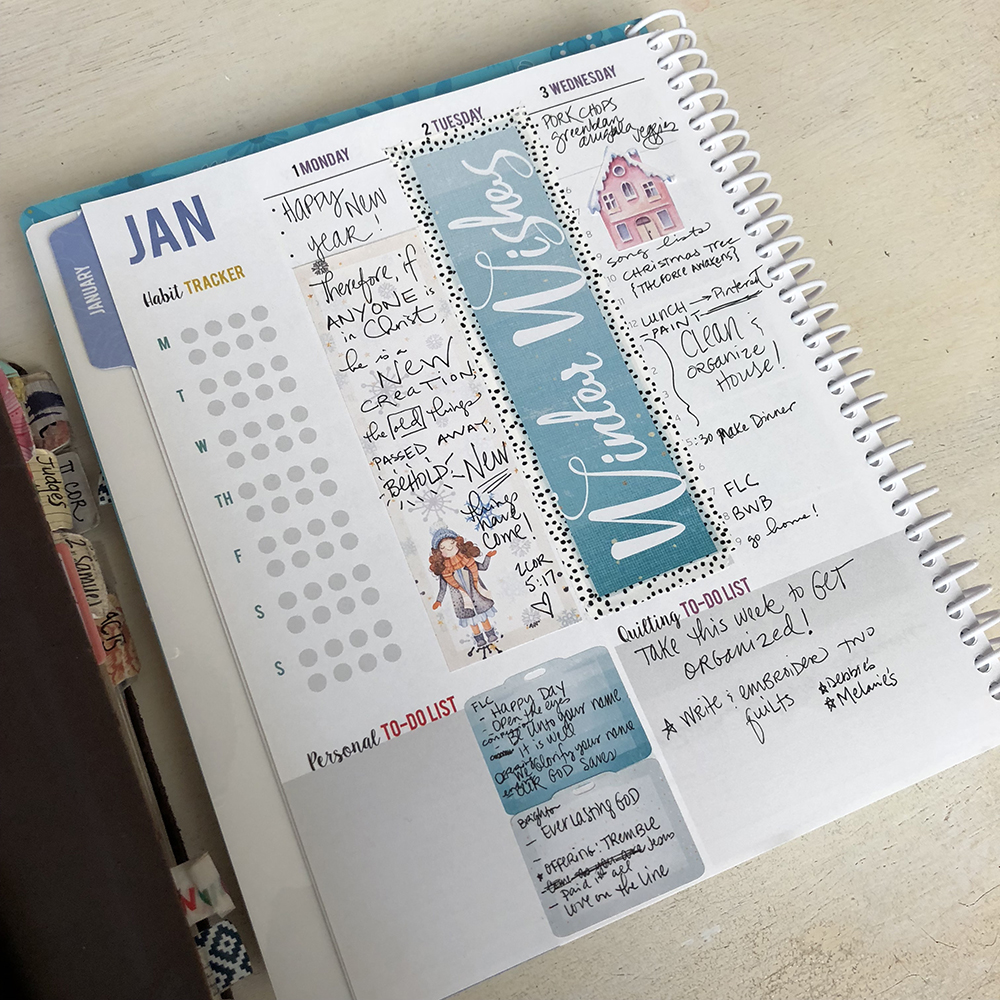 JAN
JANUARY
Habit TRACKER
M
T
W
TH
F
S
S
1 MONDAY
HAPPY NEW
year!
Therefore, if
ANYONE is
in Christ
he is a
NEW
CREATION;
the old things
PASSED AWAY;
BEHOLD, NEW
things
have
come!
2 COR
5:17
2 TUESDAY
Winter Wishes
3 WEDNESDAY
PORK CHOPS
greenbean
arugala veggies
6
7
8
9 song lists
10 CHRISTMAS TREE
{THE FORCE AWAKENS}
11
12 LUNCH → Pinterest
PAINT
CLEAN &
ORGANIZE
HOUSE!
2
3
4
5:30 Make Dinner
6
7 FLC
8 BWB
9 go home!
Personal TO-DO LIST
FLC
- HAPPY DAY
- Open the eyes
- Be Unto your name
- It is well
- We Glorify your name
- OUR GOD SAVES
Brighton
- Everlasting GOD
OFFERING: TREMBLE
Jesus
- Paid it all
love on the line
Quilting TO-DO LIST
TAKE this week to GET
ORGANIZED!
☆ Write & embroider TWO
quilts
☆ Debbie's
☆ Melanie's
1 COR
Judges
2 Samuel
ACTS